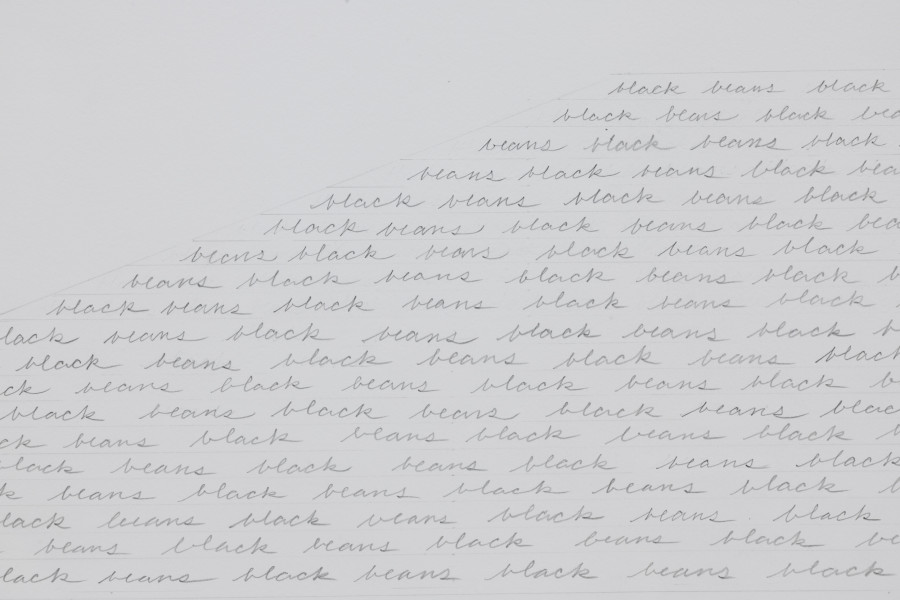 black beans black
black beans black
beans black beans black
beans black beans black
black beans black beans black
black beans black beans black
beans black beans black beans black
beans black beans black beans black
black beans black beans black beans black
beans black beans black beans black
black beans black beans black beans black
beans black beans black beans black
black beans black beans black beans
beans black beans black beans black
black beans black beans black beans black
beans black beans black beans black
black beans black beans black beans black
beans black beans black beans black
black beans black beans black beans black